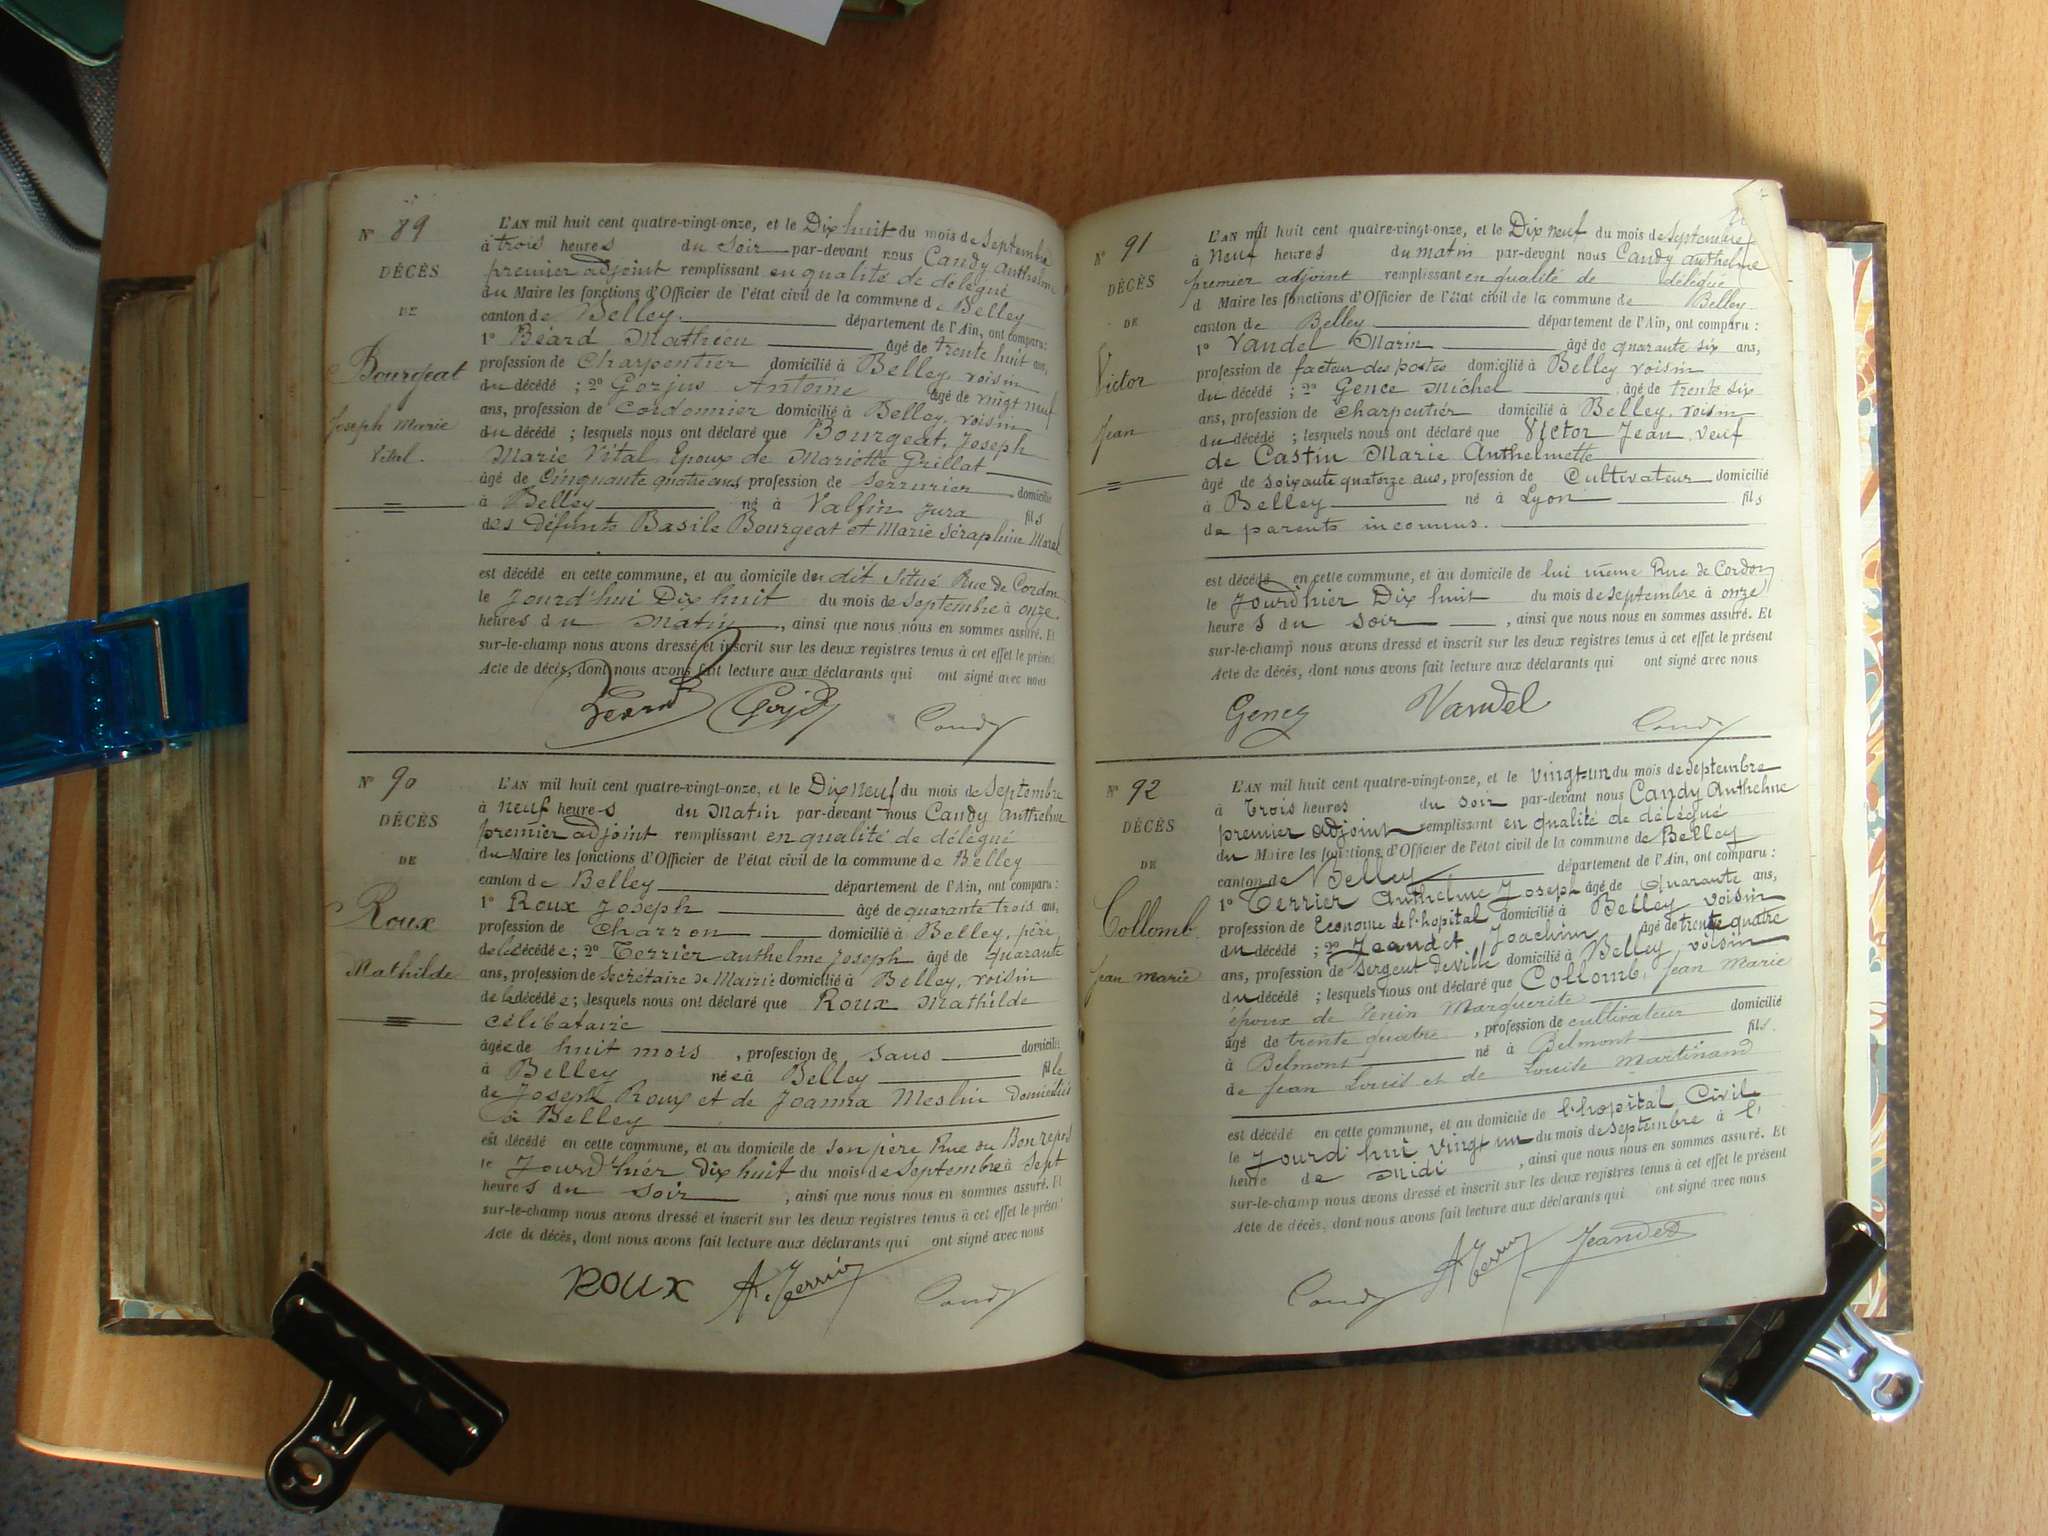 N° 89
DÉCÈS
DE
Bourgeat
Joseph Marie
Vital.
L'AN mil huit cent quatre-vingt-onze, et le Dix huit du mois de septembre
à trois heures du soir par-devant nous Candy Anthelme
premier adjoint remplissant en qualité de délégué
du Maire les fonctions d'Officier de l'état civil de la commune de Belley
canton de Belley département de l'Ain, ont comparu :
1° Béard Mathieu âgé de trente huit ans,
profession de Charpentier domicilié à Belley, voisin
du décédé ; 2° Gorjus Antoine âgé de vingt neuf
ans, profession de Cordonnier domicilié à Belley, voisin
du décédé ; lesquels nous ont déclaré que Bourgeat, Joseph
Marie Vital époux de Mariette Grillat
âgé de Cinquante quatre ans profession de serrurier domicilié
à Belley né à Valfin Jura fils
des défunts Basile Bourgeat et Marie Séraphine Morel
est décédé en cette commune, et au domicile du dit situé Rue de Cordon
le Jourd'hui Dix huit du mois de septembre à onze
heures du Matin, ainsi que nous nous en sommes assuré. Et
sur-le-champ nous avons dressé et inscrit sur les deux registres tenus à cet effet le présent
Acte de décès, dont nous avons fait lecture aux déclarants qui ont signé avec nous
Beard Candy
N° 90
DÉCÈS
DE
Roux
Mathilde
L'AN mil huit cent quatre-vingt-onze, et le Dix neuf du mois de septembre
à neuf heures du Matin par-devant nous Candy Anthelme
premier adjoint remplissant en qualité de délégué
du Maire les fonctions d'Officier de l'état civil de la commune de Belley
canton de Belley département de l'Ain, ont comparu :
1° Roux Joseph âgé de quarante trois ans,
profession de Charron domicilié à Belley, père
de la décédée ; 2° Terrier anthelme Joseph âgé de quarante
ans, profession de Secrétaire de Mairie domicilié à Belley, voisin
de la décédée ; lesquels nous ont déclaré que Roux Mathilde
célibataire
âgée de huit mois, profession de sans domicilié
à Belley née à Belley fille
de Joseph Roux et de Joanna Meslin Domiciliés
à Belley
est décédé en cette commune, et au domicile de son père Rue du Bon repos
le Jourd'hier dix huit du mois de septembre à sept
heures du soir, ainsi que nous nous en sommes assuré. Et
sur-le-champ nous avons dressé et inscrit sur les deux registres tenus à cet effet le présent
Acte de décès, dont nous avons fait lecture aux déclarants qui ont signé avec nous
ROUX A. Terrier Candy
N° 91
DÉCÈS
DE
Victor
Jean
L'AN mil huit cent quatre-vingt-onze, et le Dix neuf du mois de septembre
à Neuf heures du matin par-devant nous Candy anthelme
premier adjoint remplissant en qualité de délégué
d Maire les fonctions d'Officier de l'état civil de la commune de Belley
canton de Belley département de l'Ain, ont comparu :
1° Vandel Marin âgé de quarante six ans,
profession de facteur des postes domicilié à Belley voisin
du décédé ; 2° Gence Michel âgé de trente six
ans, profession de Charpentier domicilié à Belley, voisin
du décédé ; lesquels nous ont déclaré que Victor Jean, veuf
de Castin Marie Anthelmette
âgé de soixante quatorze ans, profession de Cultivateur domicilié
à Belley né à Lyon fils
de parents inconnus.
est décédé en cette commune, et au domicile de lui même Rue de Cordon
le Jourd'hier Dix huit du mois de septembre à onze
heures du soir, ainsi que nous nous en sommes assuré. Et
sur-le-champ nous avons dressé et inscrit sur les deux registres tenus à cet effet le présent
Acte de décès, dont nous avons fait lecture aux déclarants qui ont signé avec nous
Gence Vandel Candy
N° 92
DÉCÈS
DE
Collomb.
Jean marie
L'AN mil huit cent quatre-vingt-onze, et le vingt-un du mois de septembre
à Trois heures du soir par-devant nous Candy Anthelme
premier adjoint remplissant en qualité de délégué
du Maire les fonctions d'Officier de l'état civil de la commune de Belley
canton de Belley département de l'Ain, ont comparu :
1° Terrier Anthelme Joseph âgé de Quarante ans,
profession de Econome de l'hopital domicilié à Belley voisin
du décédé ; 2° Jeandet Joachim âgé de trente quatre
ans, profession de Sergent de ville domicilié à Belley, voisin
du décédé ; lesquels nous ont déclaré que Collomb, Jean Marie
époux de Venin Marguerite
âgé de trente quatre, profession de cultivateur domicilié
à Belmont né à Belmont fils.
de Jean Louis et de Louise Martinand
est décédé en cette commune, et au domicile de l'hopital Civil
le Jourd'hui vingt un du mois de septembre à l'
heure de midi, ainsi que nous nous en sommes assuré. Et
sur-le-champ nous avons dressé et inscrit sur les deux registres tenus à cet effet le présent
Acte de décès, dont nous avons fait lecture aux déclarants qui ont signé avec nous
Candy A Terrier Jeandet